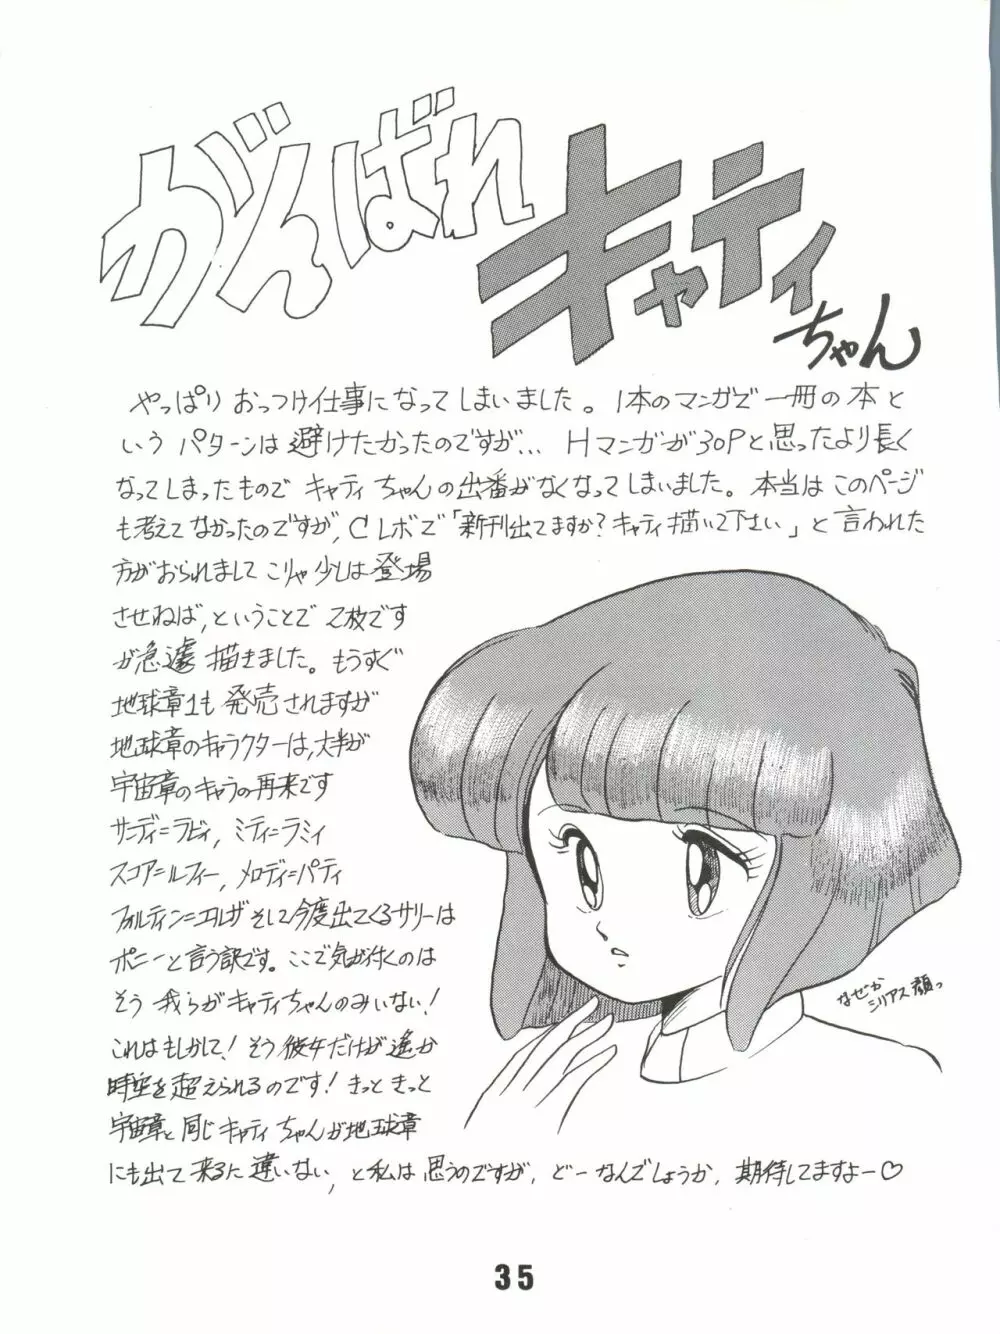 がんばれ
キャティ
ちゃん
やっぱり おっつけ仕事になってしまいました。1本のマンガで一冊の本と
いう パターンは 避けたかったのですが... Hマンガが30Pと思ったより長く
なってしまったもので キャティちゃんの出番がなくなってしまいました。本当は このページ
も考えてなかったのですが、Cレボで「新刊出てますか?キャティ描いて下さい」と 言われた
方がおられまして こりゃ少しは登場
させねば、ということで 2枚です
が急遽 描きました。もうすぐ
地球章1も 発売されますが
地球章のキャラクターは、大半が
宇宙章のキャラの再来です
サンディ=ラビィ, ミティ=ラミィ
スコア=ルフィー, メロディ=パティ
フォルティン=エルザ そして今度出てくるサリーは
ポニーと言う訳です。ここで気が付くのは
そう 我らがキャティちゃんのみいない!
これはもしかして! そう 彼女だけが遥か
時空を超えられるのです! きっと きっと
宇宙章と 同じ キャティ ちゃんが地球章
にも出て 来るに 違いない、と私は 思うのですが, どーなんでしょうか, 期待してますよー♡
なぜか
シリアス顔っ
35